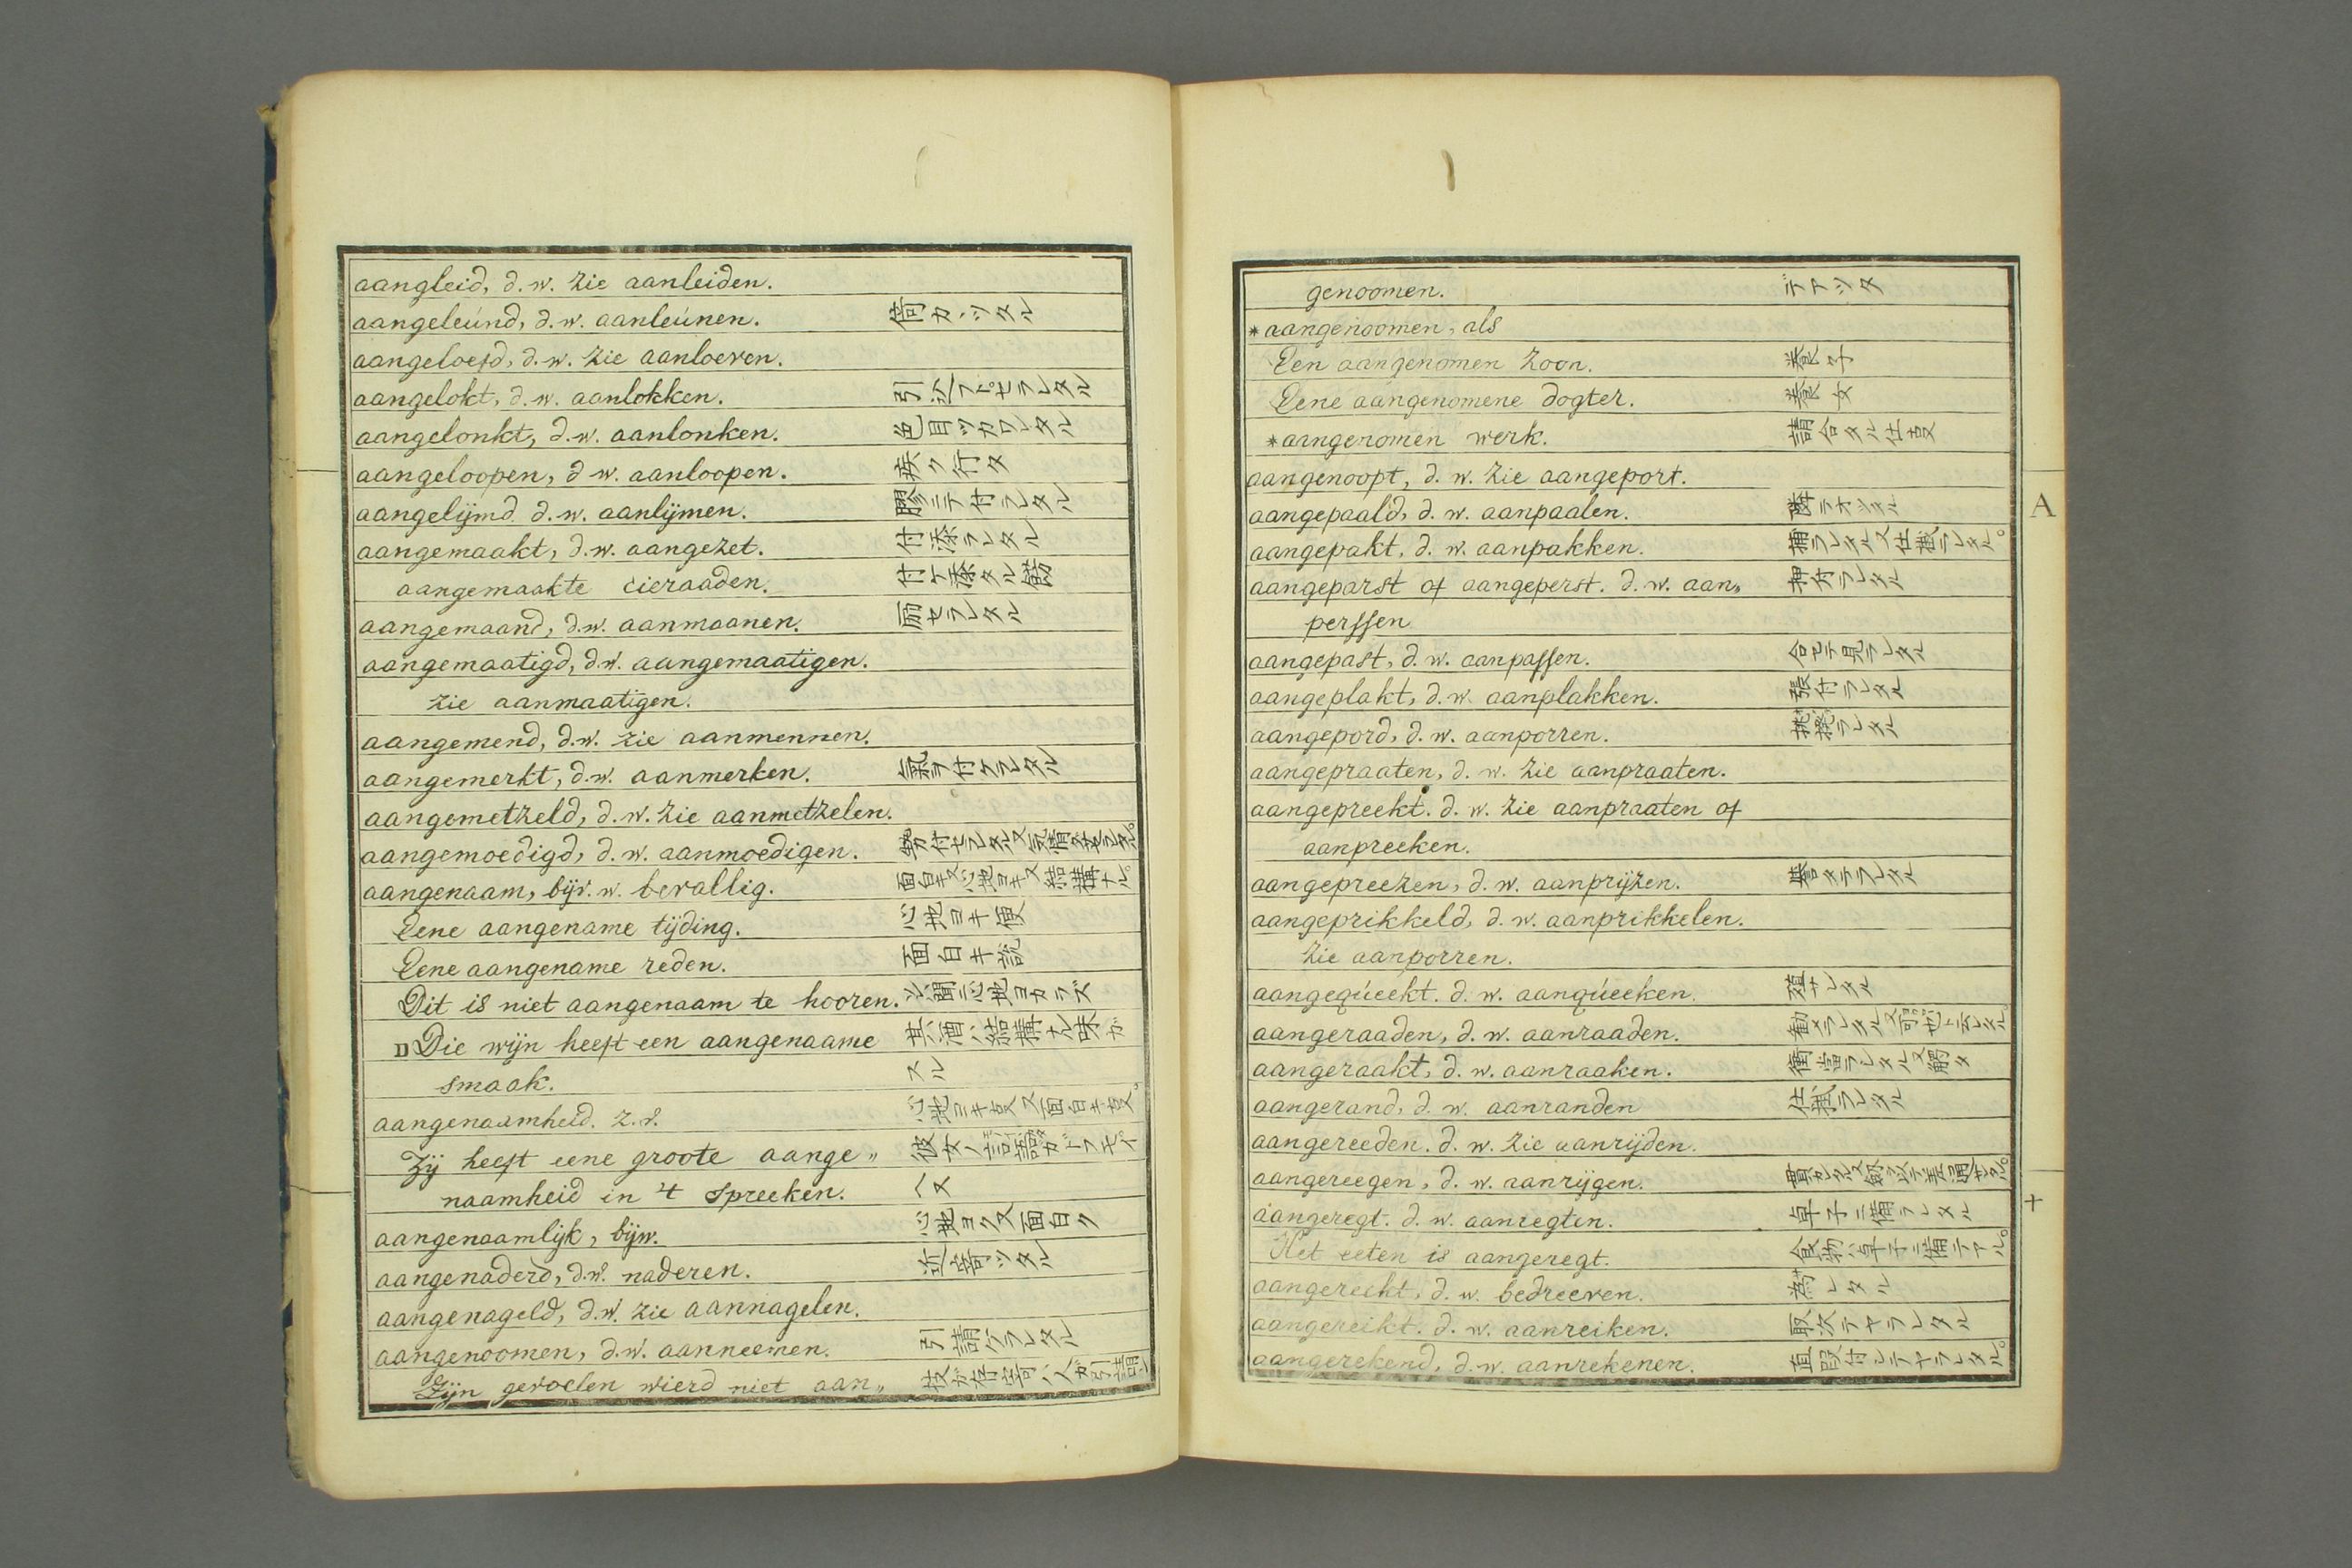 aangleid, d. w. zie aanleiden.
aangeleúnd, d. w. aanleúnen. 倚カヽツタル
aangeloefd, d. w. zie aanloeven.
aangelokt, d. w. aanlokken. 引
aangelonkt, d. w. aanlonken. 色目ツカワレタル
aangeloopen, d w. aanloopen. 疾ク行タ
aangelijmd d. w. aanlijmen. 膠ニテ付ラレタル
aangemaakt, d. w. aangezet. 付添ラレタル
aangemaakte cieraaden. 付ケ添タル餝
aangemaand, d. w. aanmaanen. セラレタル
aangemaatigd, d. w. aangemaatigen.
zie aanmaatigen.
aangemend, d. w. zie aanmennen.
aangemerkt, d. w. aanmerken. 氣ヲ付ケラレタル
aangemetzeld, d. w. zie aanmetzelen.
aangemoedigd, d. w. aanmoedigen.
aangenaam, bijv. w. bevallig. 面白キ又心地ヨキ又結構ナル。
Eene aangename tijding. 心地ヨキ便
Eene aangename reden. 面白キ説
Dit is niet aangenaam te hooren. 聞ニ心地ヨカラズ
D Die wijn heeft een aangenaame 其酒ハ結構ナル味ガ
smaak. スル
aangenaamheid. z. v. 心地ヨキ叓又面白キ叓
Zij heeft eene groote aange„ 彼女ノ言語ガ
naamheid in 't spreeken.
aangenaamlijk, bijw. 心地ヨク又面白ク
aangenaderd, d. w. naderen. 近寄ツタル
aangenageld, d. w. zie aannagelen.
aangenoomen, d. w. aanneemen. 引請ケラレタル
Zijn gevoelen wierd niet aan„
genoomen. デアツタ
* aangenoomen, als
Een aangenomen zoon. 養子
Eene aangenomene dogter. 養女
* aangenomen werk. 請合タル仕叓
aangenoopt, d. w. zie aangeport.
aangepaald, d. w. aanpaalen.
aangepakt, d. w. aanpakken. 捕ラレタル又仕掛ラレタル。
aangeparst of aangeperst. d. w. aan„ 押付ラレタル
perssen
aangepast, d. w. aanpassen. 合セテ見ラレタル
aangeplakt, d. w. aanplakken. 張付ラレタル
aangepord, d. w. aanporren. 挑撥ラレタル
aangepraaten, d. w. zie aanpraaten.
aangepreekt. d. w. zie aanpraaten of
aanpreeken.
aangepreezen, d. w. aanprijzen. 誉タテラレタル
aangeprikkeld, d. w. aanprikkelen.
zie aanporren.
aangeqúeekt. d. w. aanqúeeken. 殖サレタル
aangeraaden, d. w. aanraaden. 勧メラレタル
aangeraakt, d. w. aanraaken. 衝當ラレタル又觸タ
aangerand, d. w. aanranden 仕掛ラレタル
aangereeden. d. w. zie aanrijden.
aangereegen, d. w. aanrijgen.
aangeregt. d. w. aanregten. 卓子ニ備ラレタル
Het eeten is aangeregt. 食物ハ卓子ニ備テアル。
aangereekt, d. w. bedreeven. レタル
aangereikt. d. w. aanreiken. 取次テヤラレタル
aangerekend, d. w. aanrekenen. 直段付シテヤラレタル。
A
+